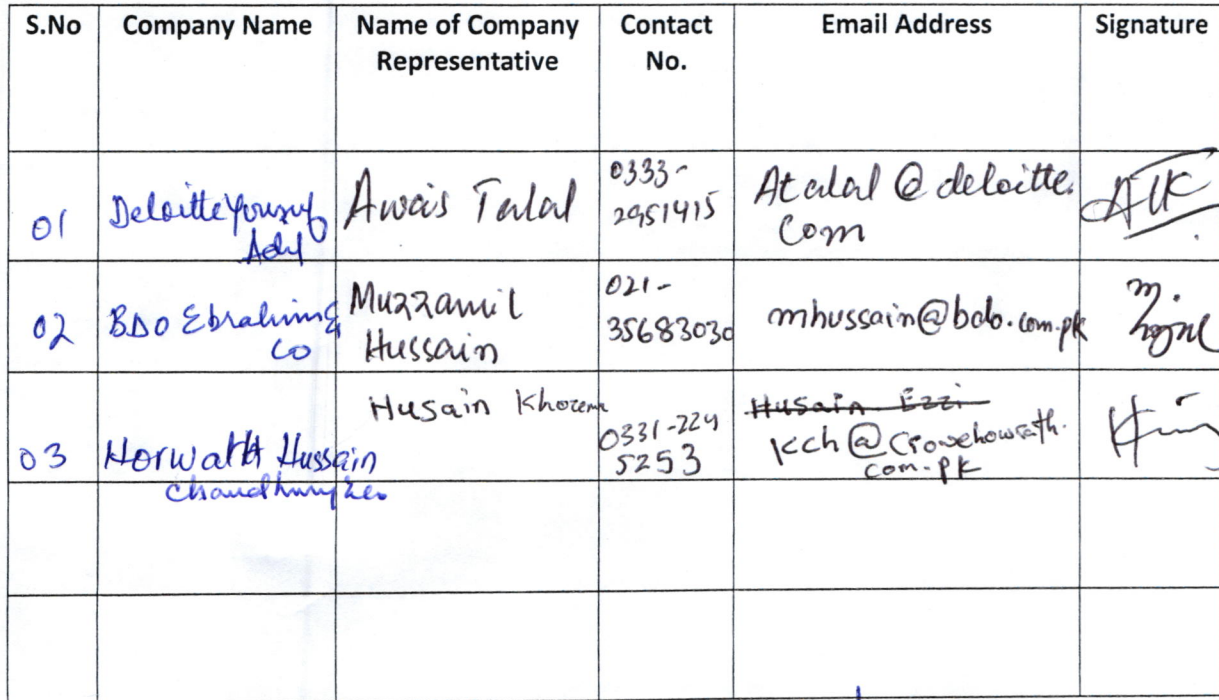 S.No Company Name Name of Company Representative Contact No. Email Address Signature
01 Deloitte Yousuf Adil Awais Talal 0333-2951415 Atalal@deloitte.com
02 BDO Ebrahim & Co Muzzamil Hussain 021-35683030 mhussain@bdo.com.pk
03 Horwath Hussain Chaudhury & Co Husain Khozema 0331-2245253 Husain Ezzi kch@crowehorwath.com.pk